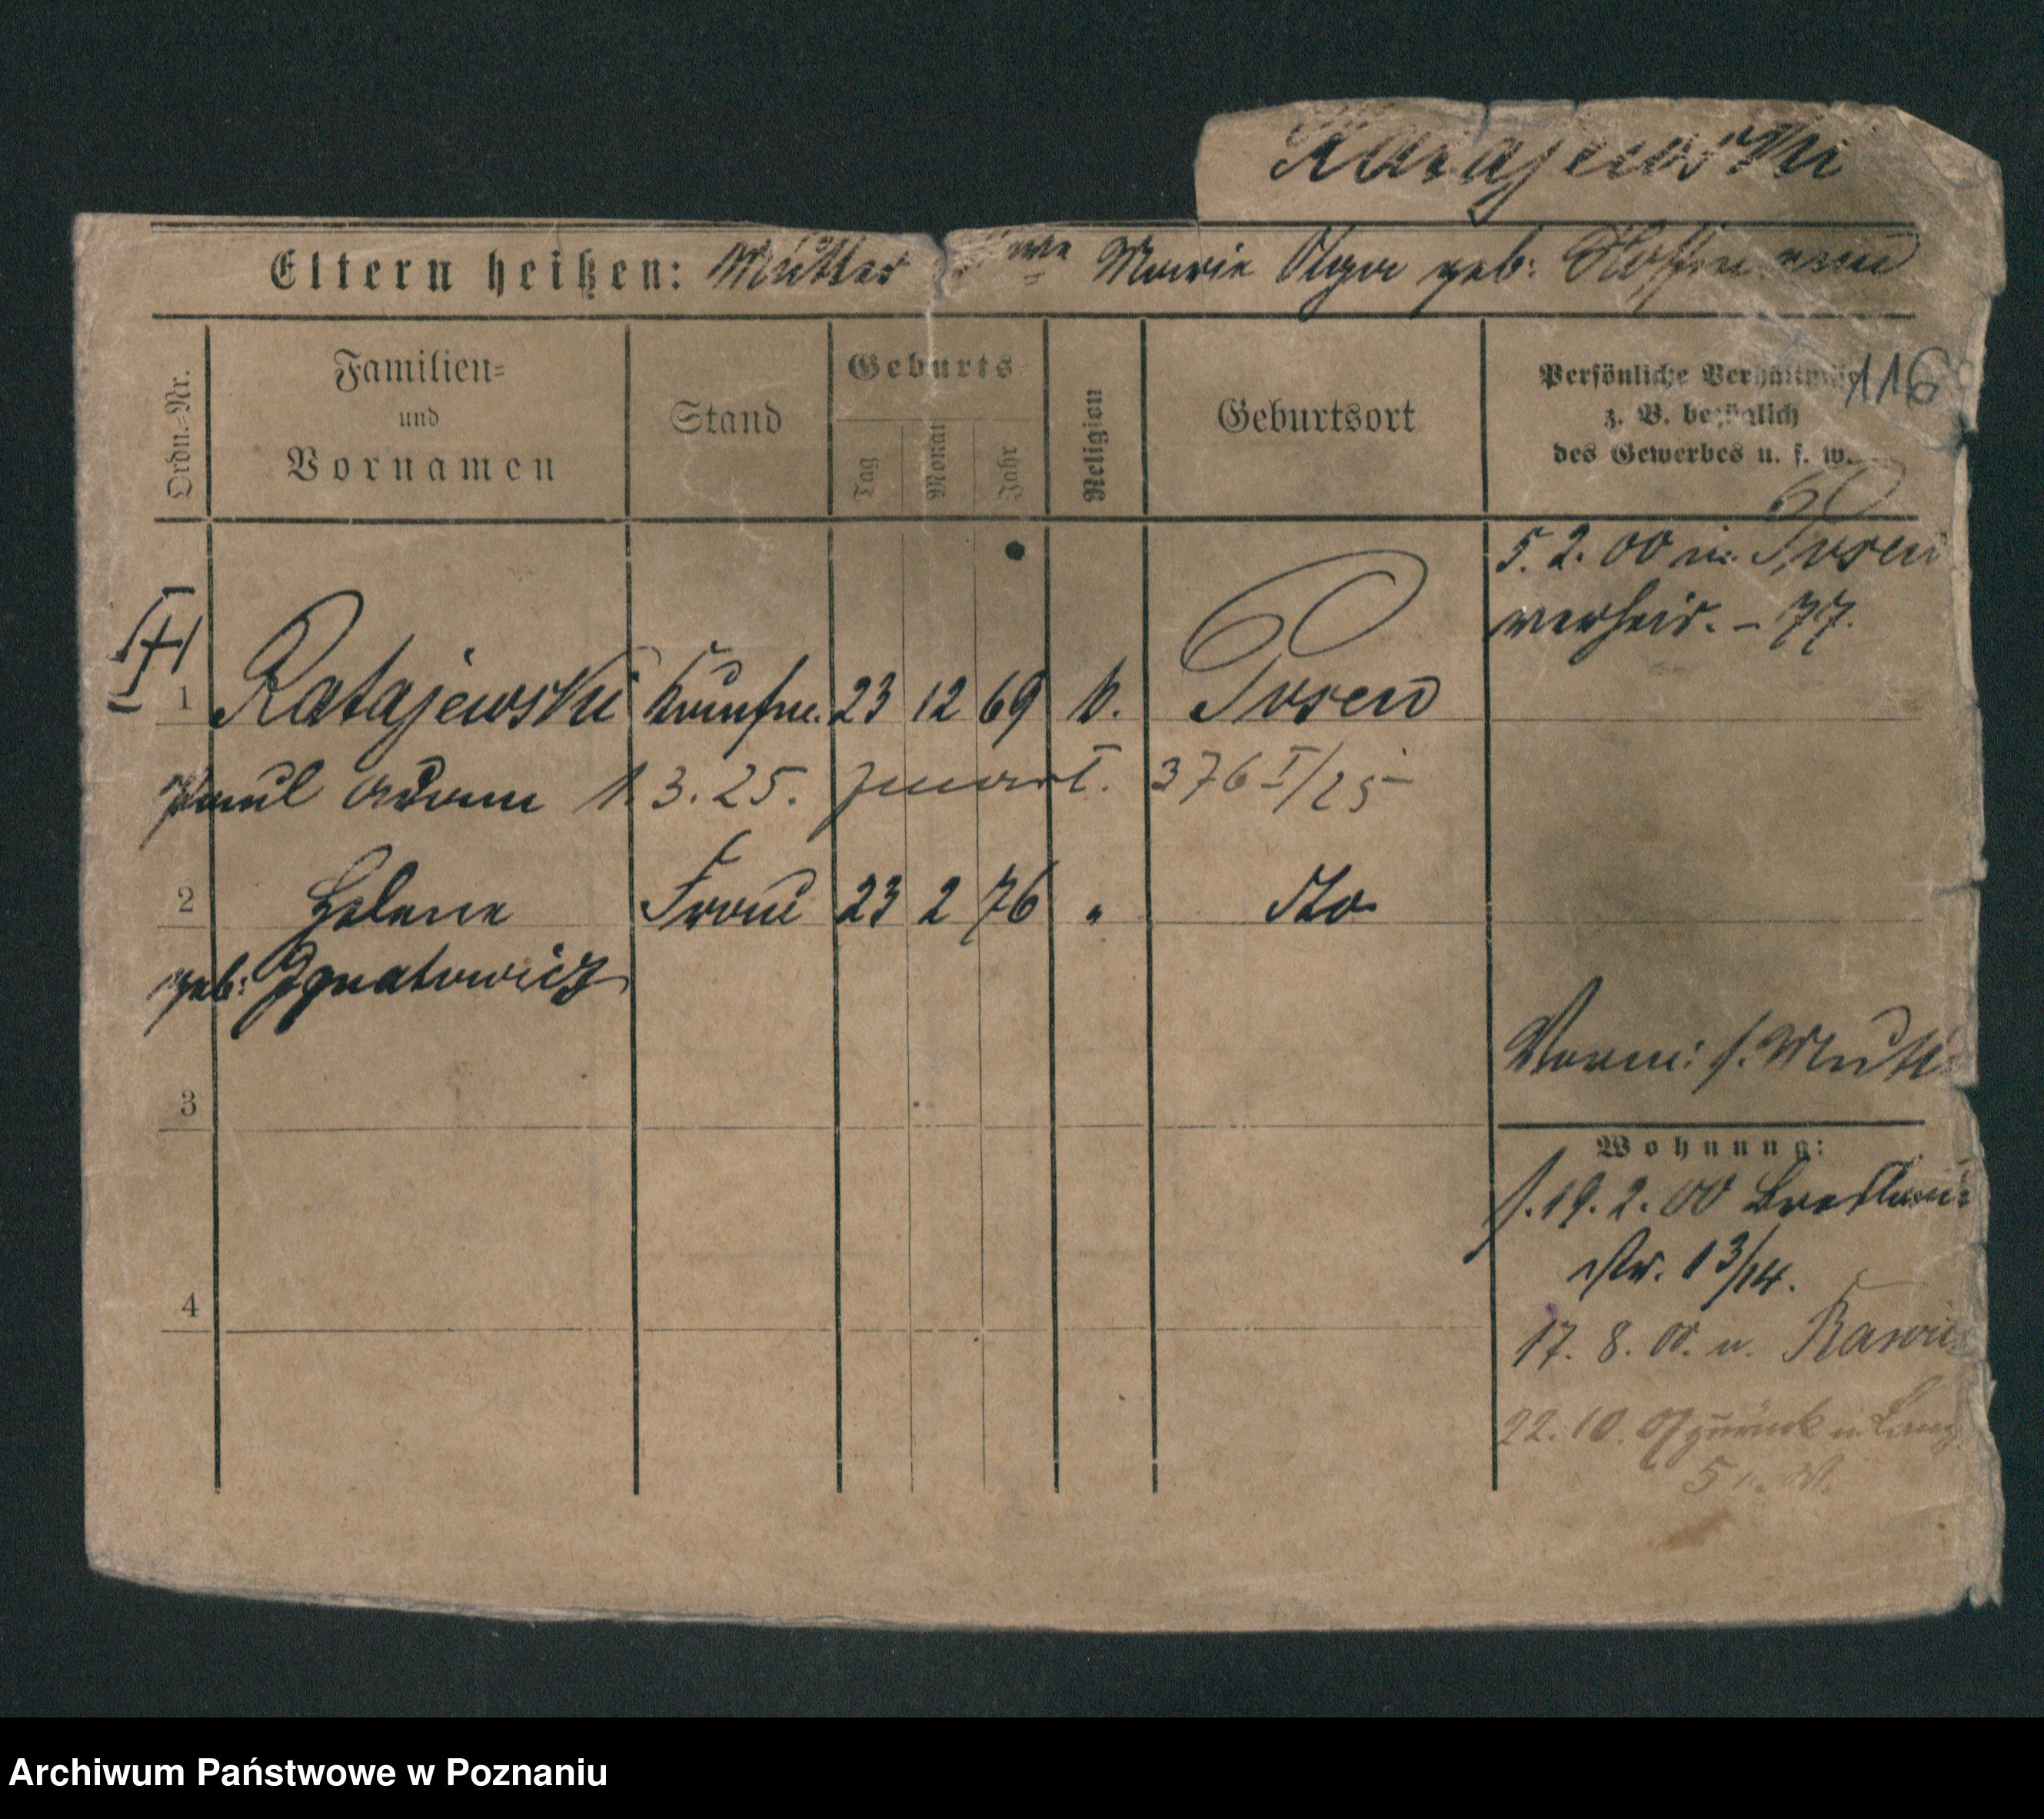 Ratajewski
Eltern heißen: Mutter Wwe Marie Olga geb: Hoffmann
Ordn.-Nr.
Familien=
und
Vornamen
Stand
Geburts-
Tag
Monat
Jahr
Religion
Geburtsort
Persönliche Verhältnisse
z. B. bezüglich
des Gewerbes u. s. w.
116
5. 2. 00 in Posen
verheir. - 77.
1 Ratajewski Kaufm. 23 12 69 k. Posen
Paul Adam 1. 3. 25. 376 I/25
2 Helene Frau 23 2 76 " dto
geb: Ignatowicz
3
Vorm: s. Mutter
Wohnung:
s. 19. 2. 00 Breslaui
Str. 13/14.
4
17. 8. 00. n.
22. 10. 07 zurück
5
Archiwum Państwowe w Poznaniu